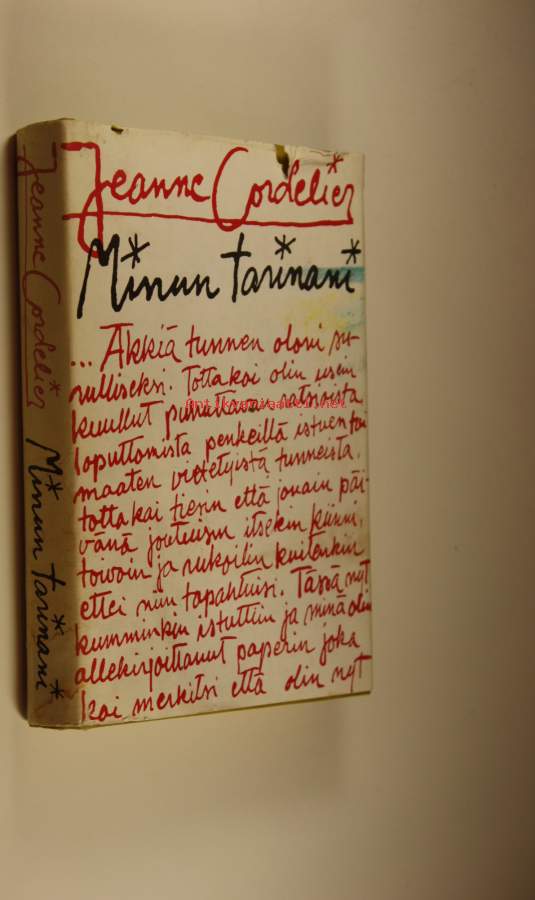 Jeanne Cordelier
Minun tarinani
... Äkkiä tunnen oloni su-
rulliseksi. Tottakai olin usein
kuullut puhuttavan ratsioista
loputtomista penkeillä istuen tai
maaten vietetyistä tunneista,
tottakai tiesin että jonain päi-
vänä joutuisin itsekin kiinni,
toivoin ja rukoilin kuitenkin
ettei niin tapahtuisi. Tässä nyt
kumminkin istuttiin ja minä olin
allekirjoittanut paperin joka
kai merkitsi että olin nyt
Jeanne Cordelier
Minun tarinani